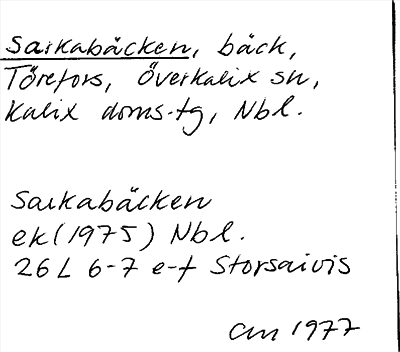 Sarkabäcken, bäck,
Törefors, Överkalix sn,
Kalix doms.tg, Nbl.
Sarkabäcken
ek (1975) Nbl.
26 L 6-7 e-f Storsaivis
1977